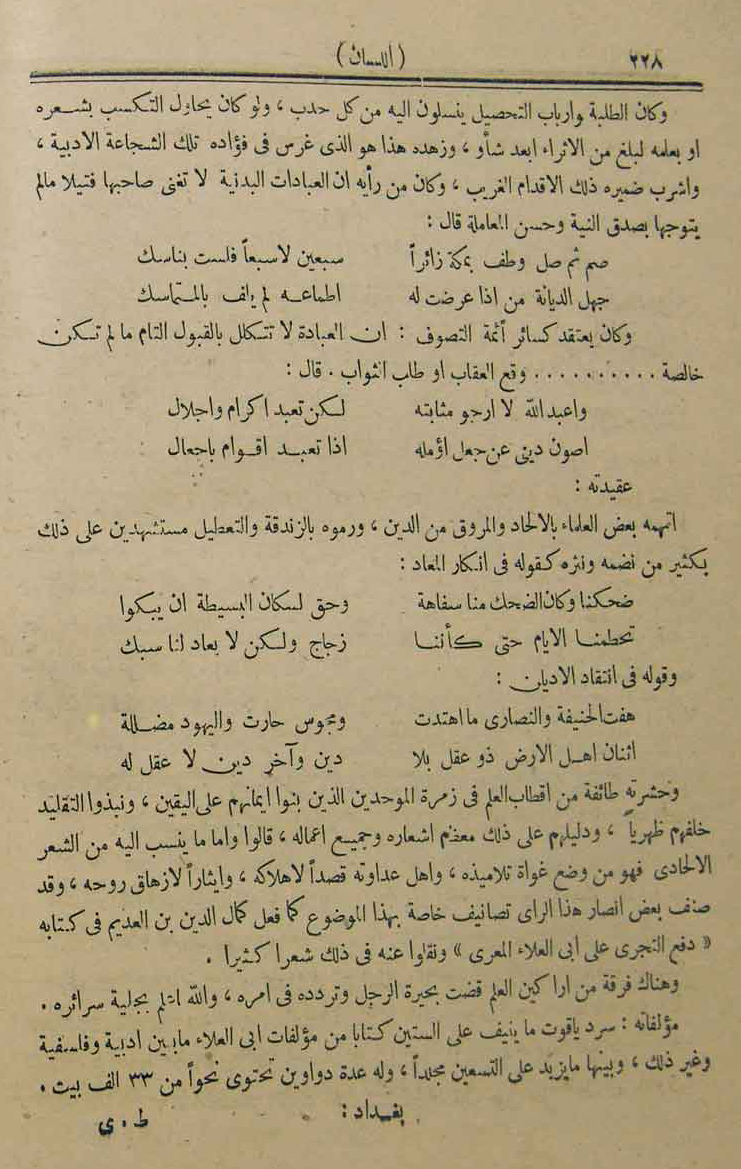 ٢٢٨ (اللسان)
وكان الطلبة وارباب التحصيل ينسلون اليه من كل حدب ، ولو كان يحاول التكسب بشعره
او بعلمه لبلغ من الاثراء ابعد شأو ، وزهده هذا هو الذى غرس فى فؤاده تلك الشجاعة الادبية ،
واشرب ضميره ذلك الاقدام الغريب ، وكان من رأيه ان العبادات البدنية لا تغنى صاحبها فتيلا مالم
يتوجها بصدق النية وحسن المعاملة قال :
صم ثم صل وطف بمكة زائراً سبعين لاسبعاً فلست بناسك
جهل الديانة من اذا عرضت له اطماعه لم يلف بالمتماسك
وكان يعتقد كسائر أئمة التصوف : ان العبادة لا تتكلل بالقبول التام ما لم تكن
خالصة .......... وقع العقاب او طلب الثواب . قال :
واعبد الله لا ارجو مثابته لكن تعبد اكرام واجلال
اصون دينى عن جعل اؤمله اذا تعبد اقوام باجعال
عقيدته :
اتهمه بعض العلماء بالالحاد والمروق من الدين ، ورموه بالزندقة والتعطيل مستشهدين على ذلك
بكثير من نضمه ونثره كقوله فى انكار المعاد :
ضحكنا وكان الضحك منا سفاهة وحق لسكان البسيطة ان يبكوا
تحطمنا الايام حتى كأننا زجاج ولكن لا يعاد لنا سبك
وقوله فى انتقاد الاديان :
هفت الحنيفة والنصارى ما اهتدت ومجوس حارت واليهود مضللة
اثنان اهل الارض ذو عقل بلا دين وآخر دين لا عقل له
وحشرته طائفة من اقطاب العلم فى زمرة الموحدين الذين بنوا ايمانهم على اليقين ، ونبذوا التقليد
خلفهم ظهرياً ، ودليلهم على ذلك معظم اشعاره وجميع اعماله ، قالوا واما ما ينسب اليه من الشعر
الالحادى فهو من وضع غواة تلاميذه ، واهل عداوته قصداً لاهلاكه ، وايثاراً لازهاق روحه ، وقد
صنف بعض انصار هذا الراى تصانيف خاصة بهذا الموضوع كما فعل كمال الدين بن العديم فى كتابه
« دفع التجرى على ابى العلاء المعرى » ونقلوا عنه فى ذلك شعرا كثيرا .
وهناك فرقة من اراكين العلم قضت بحيرة الرجل وتردده فى امره ، والله اعلم بجلية سرائره .
مؤلفاته : سرد ياقوت ما ينيف على الستين كتابا من مؤلفات ابى العلاء مابين ادبية وفلسفية
وغير ذلك ، وبينها مايزيد على التسعين مجلداً ، وله عدة دواوين تحتوى نحواً من ٣٣ الف بيت .
بغداد : ط . ى